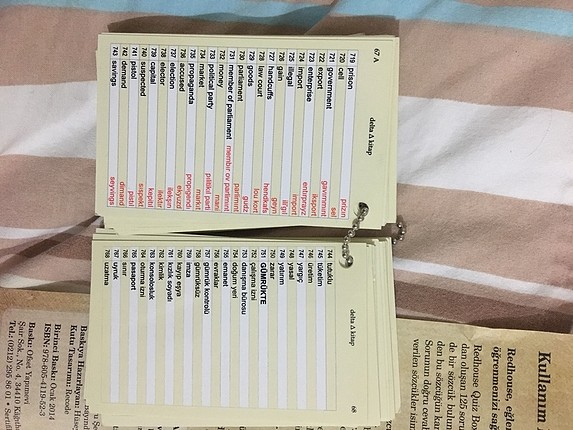 67 A
delta kitap
719 prison prizın
720 cell sel
721 government gavınmınt
722 export iksport
723 enterprise entıprayz
724 import import
725 illegal illigıl
726 gain geyn
727 handcuffs hendkafs
728 law court lou kort
729 goods gudz
730 parliament parlimınt
731 member of parliament membır ov parlimınt
732 money mani
733 political party pılitikıl parti
734 market markıt
735 propaganda propıgendı
736 accused ekyuzd
737 election ilekşın
738 elector ilektır
739 capital kepıtıl
740 suspected sıspektıd
741 pistol pistıl
742 demand dimand
743 savings seyvings
delta kitap
68
744 tutuklu
745 tüketim
746 üretim
747 yargıç
748 yasak
749 yatırım
750 zarar
751 GÜMRÜKTE
752 çalışma izni
753 danışma bürosu
754 doğum yeri
755 emanet
756 evraklar
757 gümrük kontrolü
758 gümrüksüz
759 imza
760 kayıp eşya
761 kızlık soyadı
762 kimlik
763 konsolosluk
764 oturma izni
765 pasaport
766 sınır
767 uyruk
768 uzatma
Kullanım
Redhouse, eğlen
öğrenmenizi sağ
Redhouse Quiz Box
dan oluşan 125 soru
de bir sözcük bulun
den bu sözcüğün kar
Sorunun doğru ceva
verilen sözcükler isim
Baskıya Hazırlayan: Hüse
Kutu Tasarımı: Recode
Birinci Baskı: Ocak 2014
ISBN: 978-605-4119-52-3
Baskı: Ofset Yapımevi
Şair Sok., No. 4, 34410 Kâğıth
Tel.: (0212) 295 86 01 • Sertifi